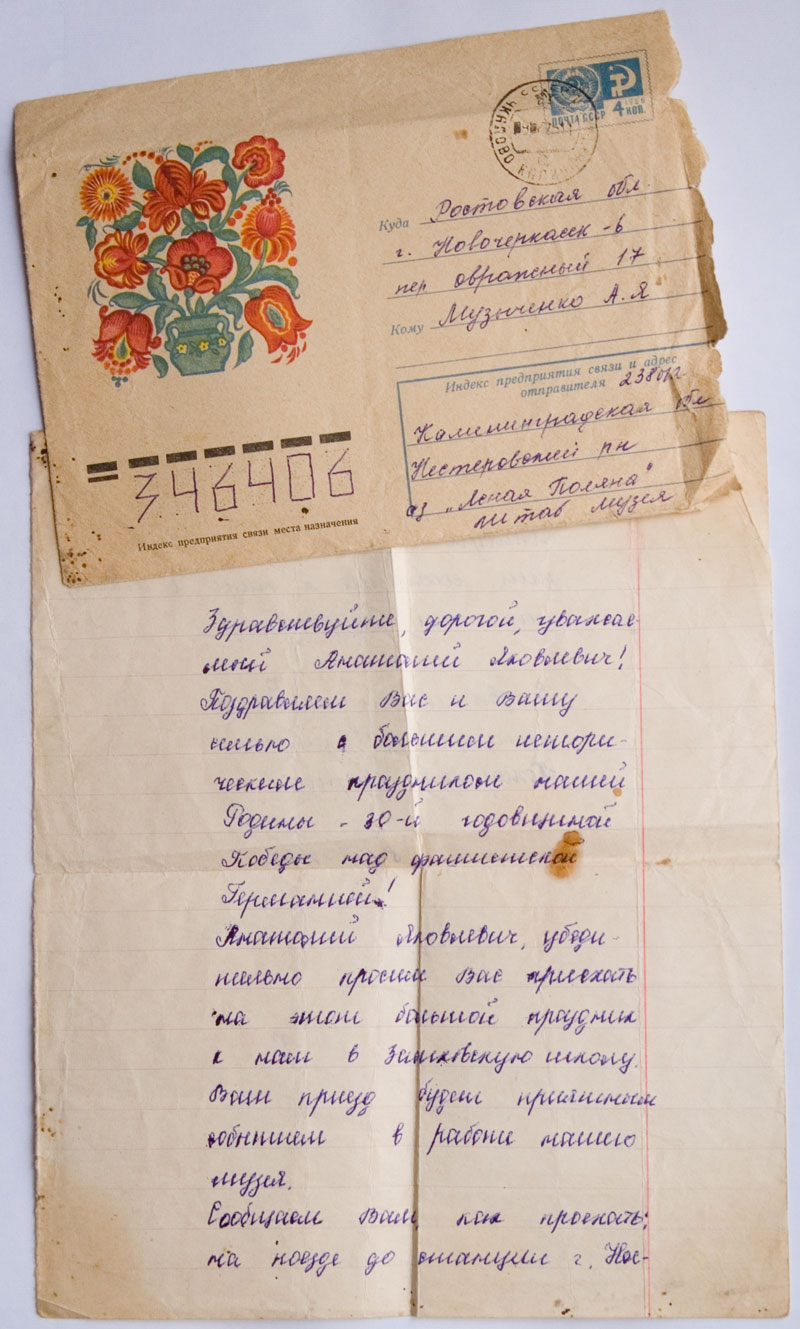 ПОЧТА СССР
4 КОП.
ЧКАЛОВО
Куда Ростовская обл.
г. Новочеркасск-6
пер овражный 17
Кому Музыченко А.Я
Индекс предприятия связи и адрес
отправителя
Калининградская обл
Нестеровский рн
"Лсная Поляна"
штаб музея
346406
Индекс предприятия связи места назначения
Здравствуйте, дорогой, уважае-
мый Анатолий Яковлевич!
Поздравляем Вас и Вашу
семью с большим истори-
ческим праздником нашей
Родины - 30-й годовщиной
Победы над фашистской
Германией!
Анатолий Яковлевич, убеди-
тельно просим Вас приехать
на этот большой праздник
к нам в школу.
Ваш приезд будет приятным
событием в работе нашего
музея.
Сообщаем Вам, как проехать:
на поезде до станции г. Нес-